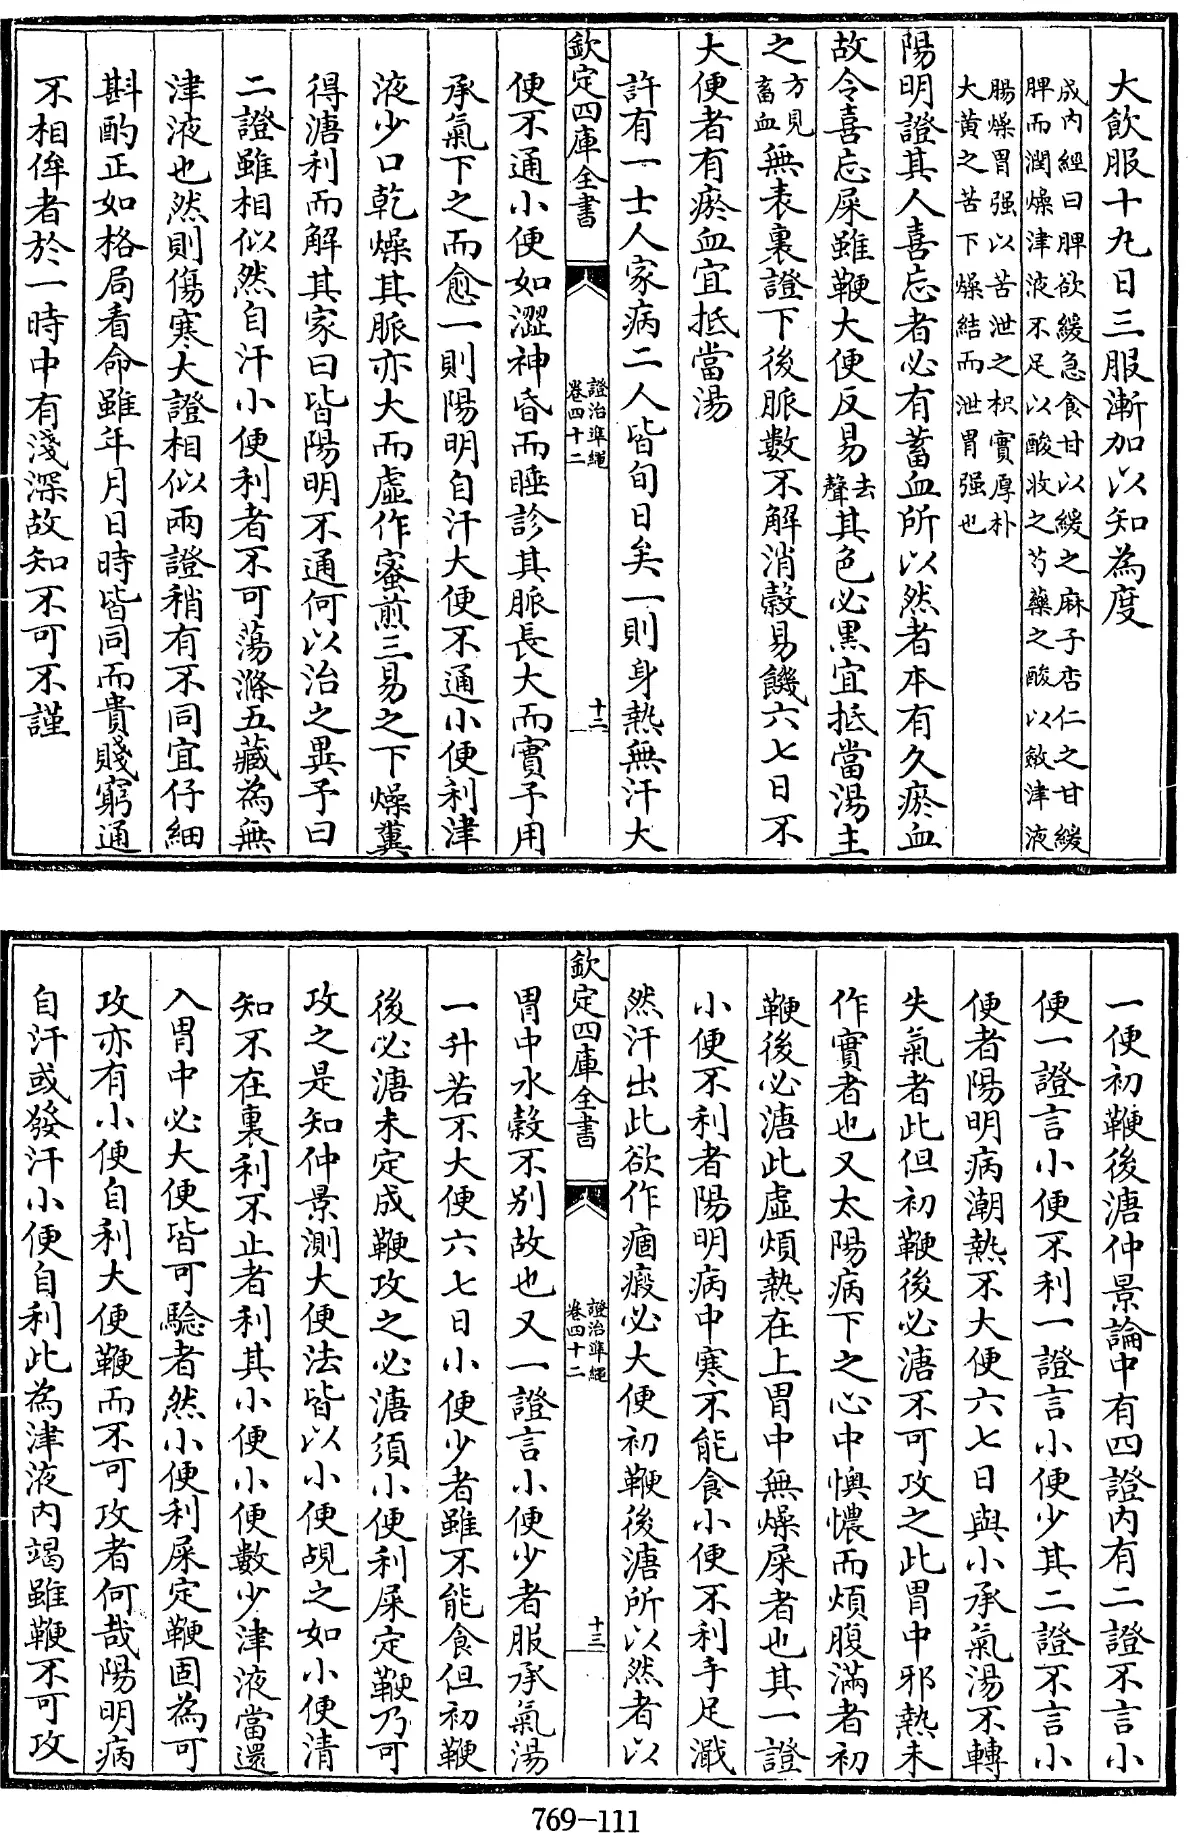 大飲服十九日三服漸加以知為度
成内經曰脾欲緩急食甘以緩之麻子杏仁之甘緩
脾而潤燥津液不足以酸收之芍藥之酸以斂津液
腸燥胃强以苦泄之枳實厚朴
大黄之苦下燥結而泄胃强也
陽明證其人喜忘者必有蓄血所以然者本有久瘀血
故令喜忘屎雖鞕大便反易去聲其色必黒宜抵當湯主
之方見畜血無表裏證下後脈數不解消穀易饑六七日不
大便者有瘀血宜抵當湯
許有一士人家病二人皆旬日矣一則身熱無汗大
欽定四庫全書
證治準繩
卷四十二
十二
便不通小便如澀神昏而睡診其脈長大而實予用
承氣下之而愈一則陽明自汗大便不通小便利津
液少口乾燥其脈亦大而虚作蜜煎三易之下燥糞
得溏利而解其家曰皆陽明不通何以治之異予曰
二證雖相似然自汗小便利者不可蕩滌五藏為無
津液也然則傷寒大證相似兩證稍有不同宜仔細
斟酌正如格局看命雖年月日時皆同而貴賤窮通
不相侔者於一時中有淺深故知不可不謹
一便初鞕後溏仲景論中有四證内有二證不言小
便一證言小便不利一證言小便少其二證不言小
便者陽明病潮熱不大便六七日與小承氣湯不轉
失氣者此但初鞕後必溏不可攻之此胃中邪熱未
作實者也又太陽病下之心中懊憹而煩腹滿者初
鞕後必溏此虚煩熱在上胃中無燥屎者也其一證
小便不利者陽明病中寒不能食小便不利手足濈
然汗出此欲作痼瘕必大便初鞕後溏所以然者以
欽定四庫全書
證治準繩
卷四十二
十三
胃中水穀不别故也又一證言小便少者服承氣湯
一升若不大便六七日小便少者雖不能食但初鞕
後必溏未定成鞕攻之必溏須小便利屎定鞕乃可
攻之是知仲景測大便法皆以小便覘之如小便清
知不在裏利不止者利其小便小便數少津液當還
入胃中必大便皆可驗者然小便利屎定鞕固為可
攻亦有小便自利大便鞕而不可攻者何哉陽明病
自汗或發汗小便自利此為津液内竭雖鞕不可攻
769-111